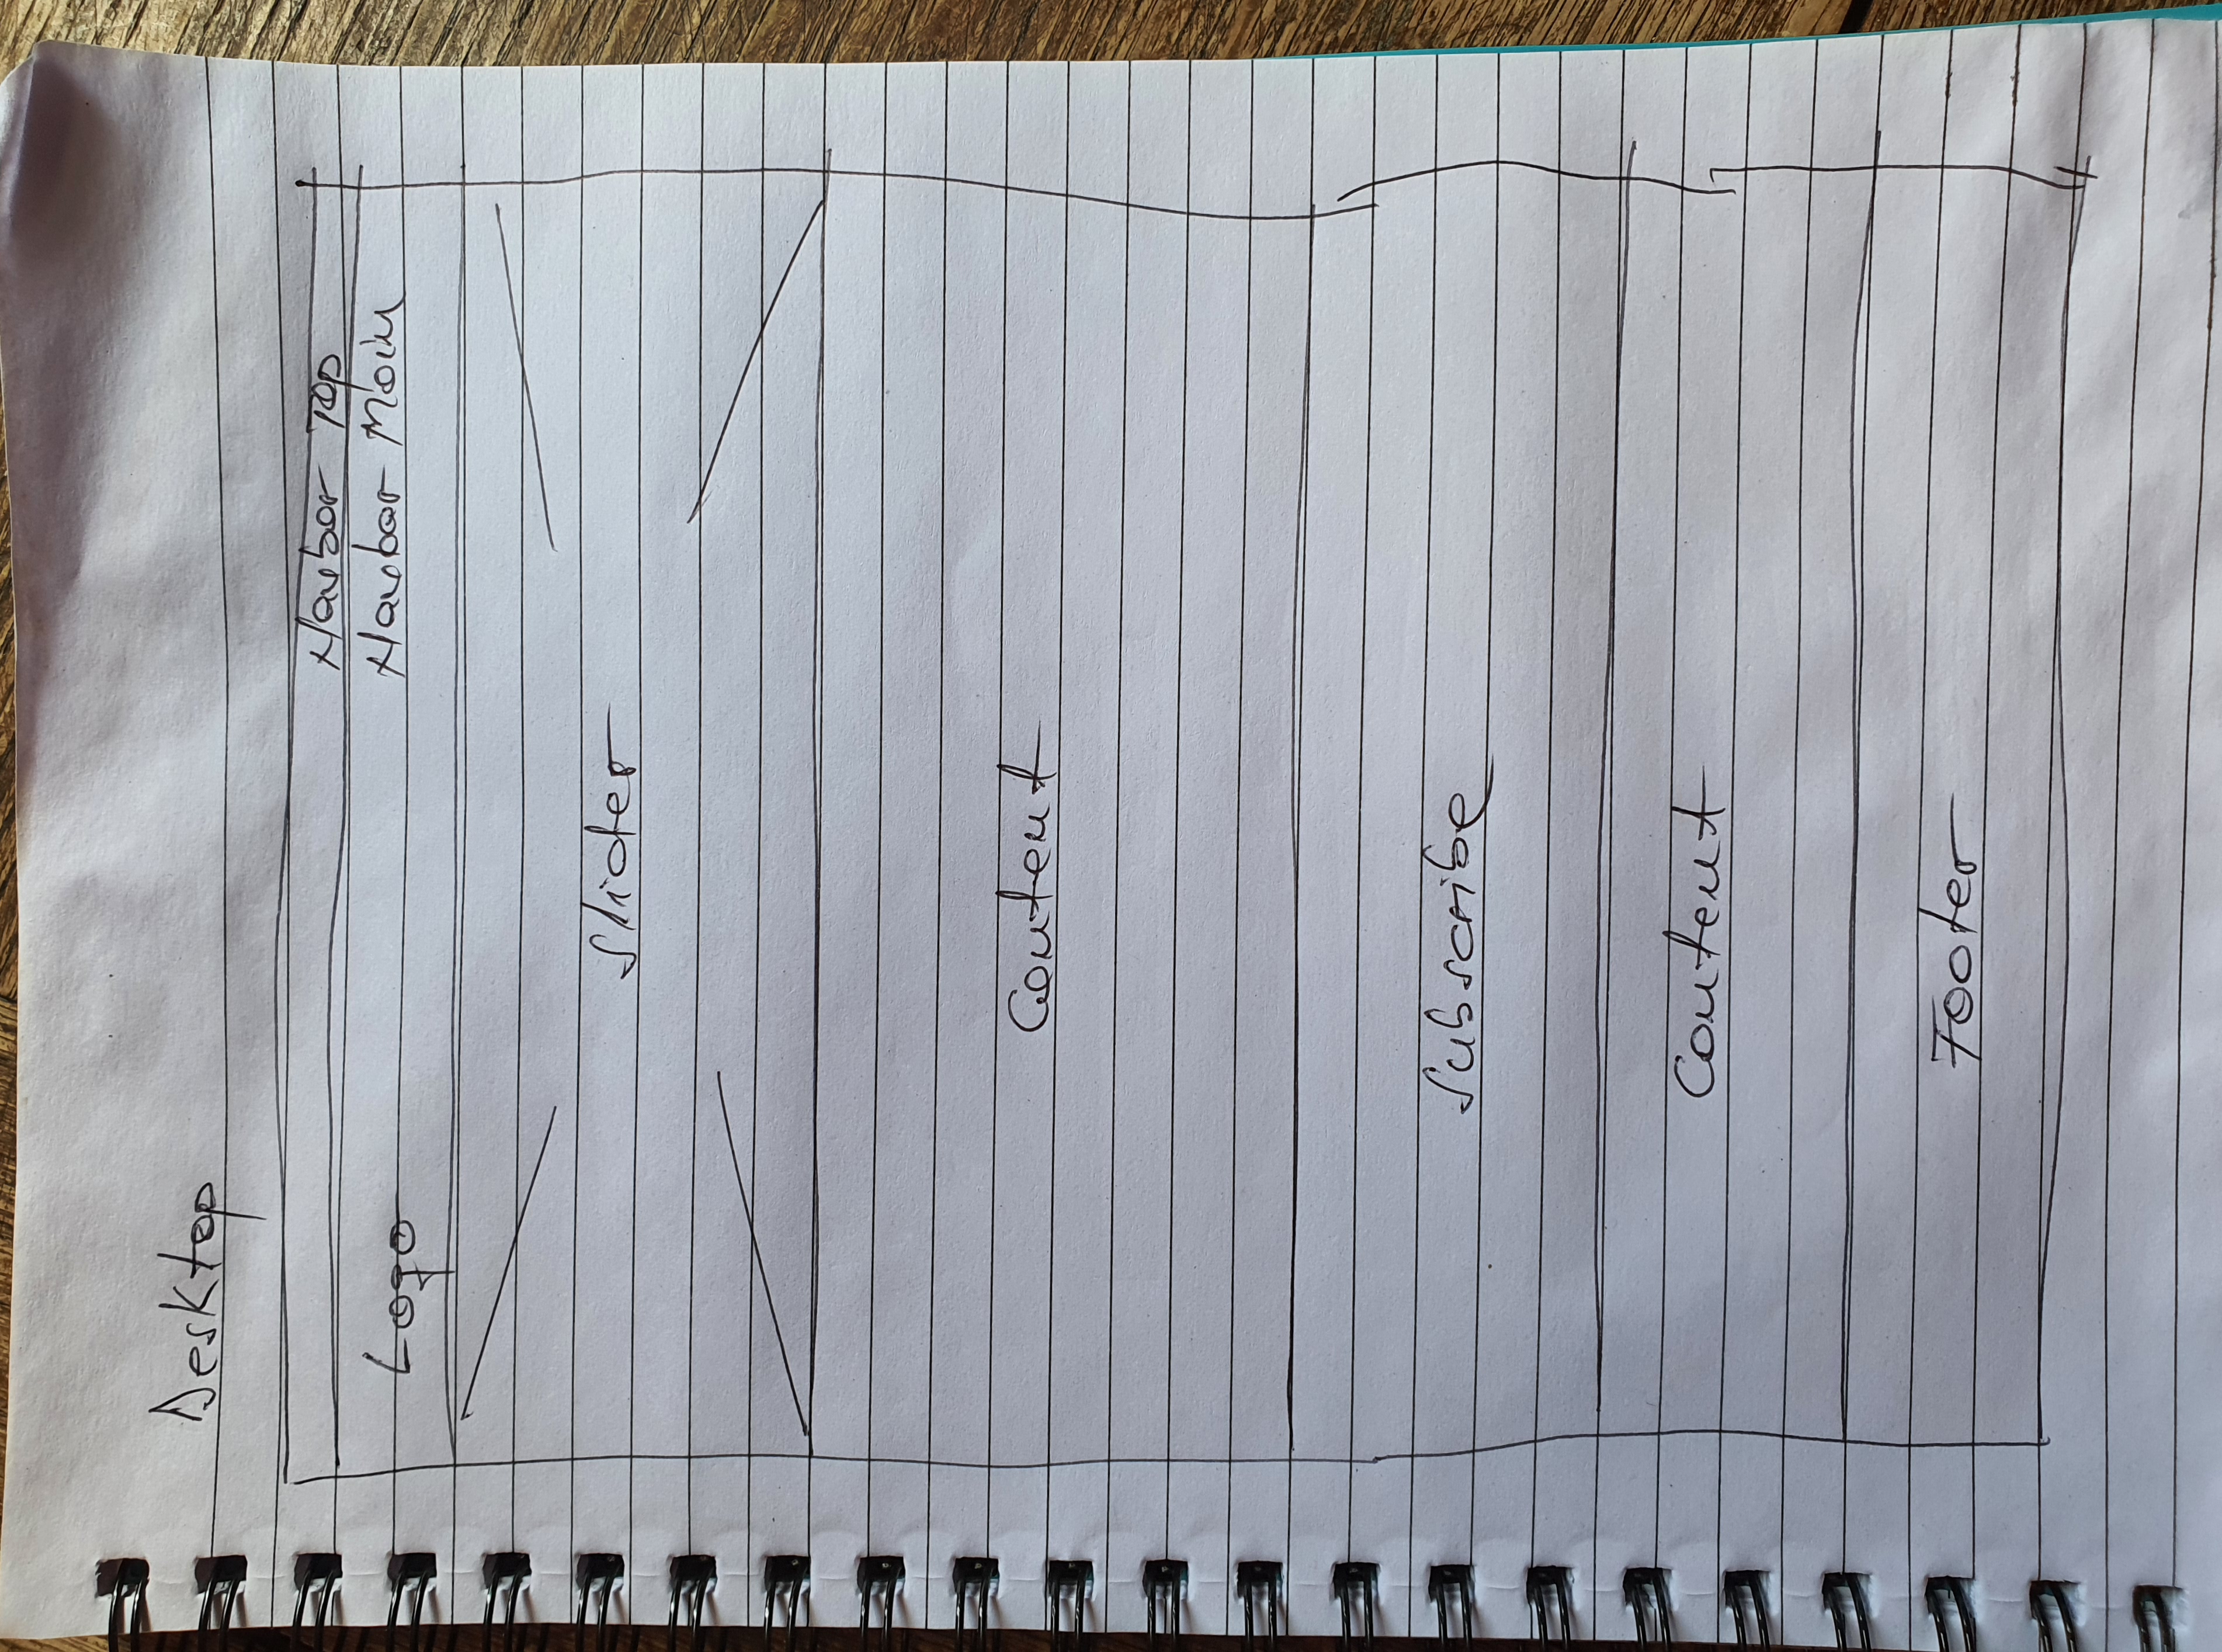 Desktop
Navbar Top
Logo Navbar Main
Slider
Content
Subscribe
Content
Footer